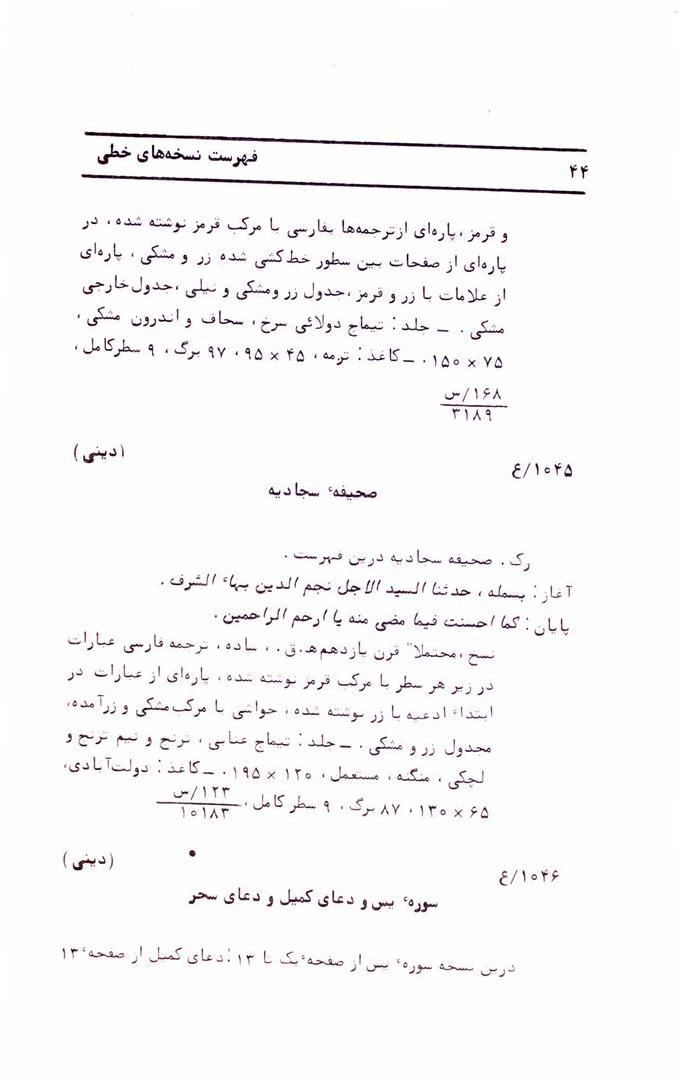 ۴۴
فهرست نسخه‌های خطی
و قرمز، پاره‌ای از ترجمه‌ها بفارسی با مرکب قرمز نوشته شده، در
پاره‌ای از صفحات بین سطور خط‌کشی شده زر و مشکی، پاره‌ای
از علامات با زر و قرمز، جدول زر و مشکی و نیلی، جدول خارجی
مشکی. ــ جلد: تیماج دولائی سرخ، سجاف و اندرون مشکی،
۷۵ × ۱۵۰. ــ کاغذ: ترمه، ۴۵ × ۹۵، ۹۷ برگ، ۹ سطر کامل،
۱۶۸/س
۳۱۸۹
۱۰۴۵/ع
(دینی)
صحیفهٔ سجادیه
رک. صحیفه سجادیه درین فهرست.
آغاز: بسمله، حدثنا السید الاجل نجم الدین بهاء الشرف.
پایان: کما احسنت فیما مضی منه یا ارحم الراحمین.
نسخ، محتملا" قرن یازدهم ه‍.ق.، ساده، ترجمه فارسی عبارات
در زیر هر سطر با مرکب قرمز نوشته شده، پاره‌ای از عبارات در
ابتداء ادعیه با زر نوشته شده، حواشی با مرکب مشکی و زر آمده،
مجدول زر و مشکی. ــ جلد: تیماج عنابی، ترنج و نیم ترنج و
لچکی، منگنه، مستعمل، ۱۲۰ × ۱۹۵. ــ کاغذ: دولت‌آبادی،
۶۵ × ۱۳۰، ۸۷ برگ، ۹ سطر کامل، ۱۲۳/س
۱۰۱۸۳
۱۰۴۶/ع
(دینی)
سورهٔ یس و دعای کمیل و دعای سحر
درین نسخه سورهٔ یس از صفحهٔ یک تا ۱۳: دعای کمیل از صفحهٔ ۱۳